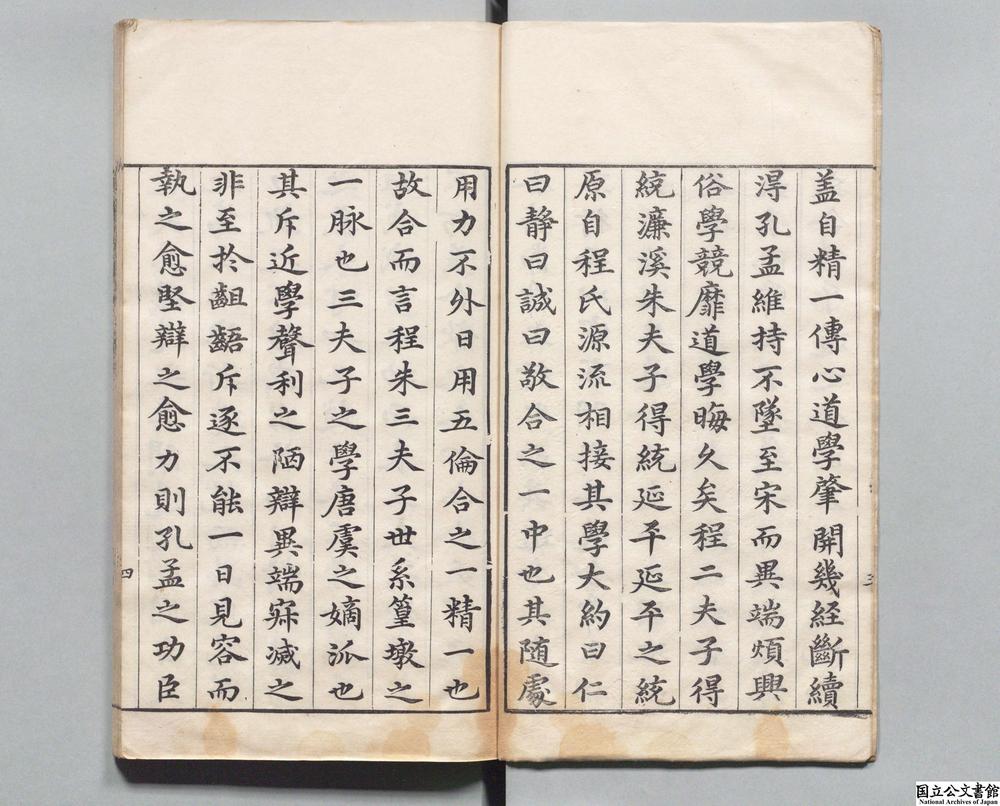 盖自精一傳心道學肇開幾經斷續
淂孔孟維持不墜至宋而異端煩興
俗學競靡道學晦久矣程二夫子得
統濂溪朱夫子得統延平延平之統
原自程氏源流相接其學大約曰仁
曰靜曰誠曰敬合之一中也其随處
三
用力不外日用五倫合之一精一也
故合而言程朱三夫子世系篁墩之
一脉也三夫子之學唐虞之嫡泒也
其斥近學聲利之陋辯異端寂滅之
非至扵齟齬斥逐不能一日見容而
執之愈堅辯之愈力則孔孟之功臣
四
国立公文書館
National Archives of Japan